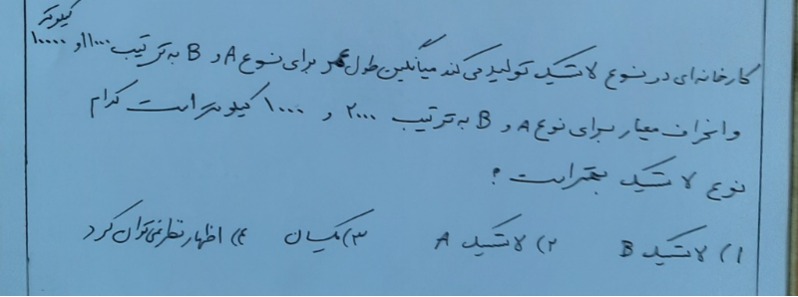 کیلومتر
کارخانه‌ای در نوع لاستیک تولید می‌کند میانگین طول عمر برای نوع A و B به ترتیب ۱۱۰۰۰ و ۱۰۰۰۰
و انحراف معیار برای نوع A و B به ترتیب ۲۰۰۰ و ۱۰۰۰ کیلومتر است کدام
نوع لاستیک بهتر است ؟
۱) لاستیک B ۲) لاستیک A ۳) یکسان ۴) اظهار نظر نمی‌توان کرد